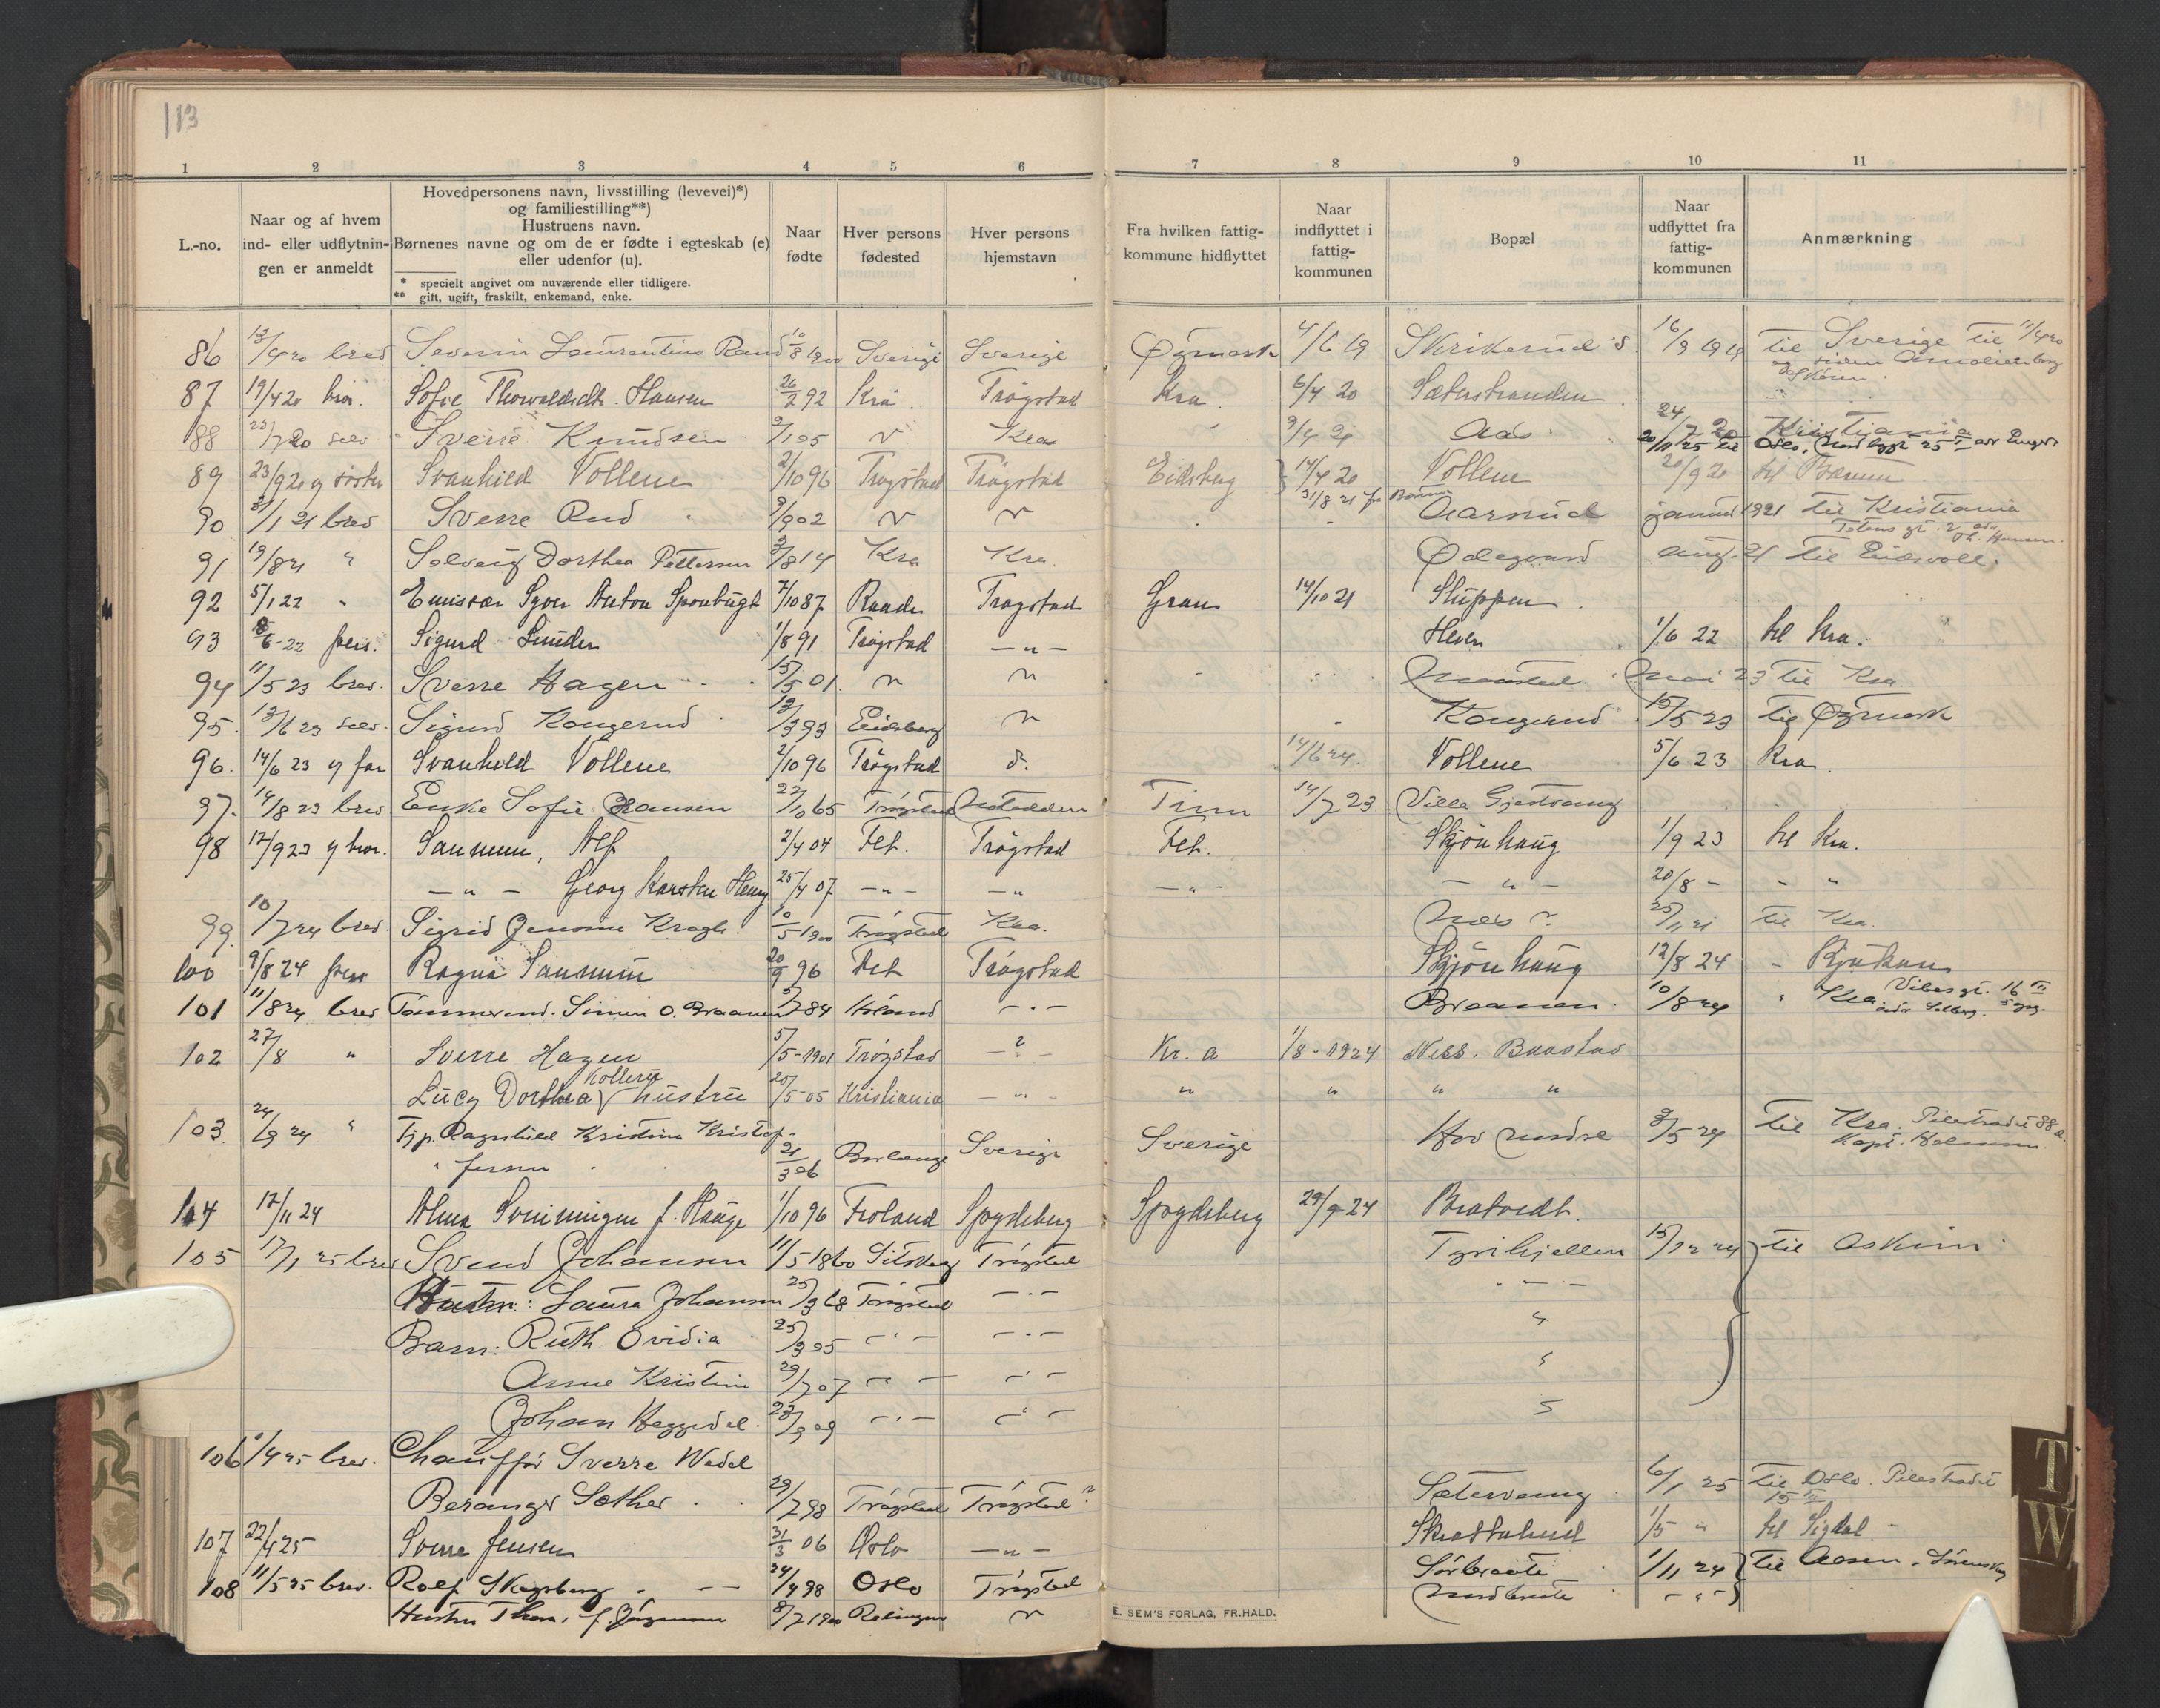 113
1 2 3 4 5 6 7 8 9 10 11
L.-no.
Naar og af hvem
ind- eller udflytnin-
gen er anmeldt
Hovedpersonens navn, livsstilling (levevei)*)
og familiestilling**)
Hustruens navn.
Børnenes navne og om de er fødte i egteskab (e)
eller udenfor (u).
* specielt angivet om nuværende eller tidligere.
** gift, ugift, fraskilt, enkemand, enke.
Naar
fødte
Hver persons
fødested
Hver persons
hjemstavn
Fra hvilken fattig-
kommune hidflyttet
Naar
indflyttet i
fattig-
kommunen
Bopæl
Naar
udflyttet fra
fattig-
kommunen
Anmærkning
86 13/4 20 brev Severin Laurentius 10/8 1900 Sverige Sverige Øymark 4/6 19 Skrikerud s. 16/9 1919 til Sverige til 11/4 20
87 19/4 20 bror. Sofie Thorvaldsdtr. Hansen 26/2 92 Kra. Trøgstad Kra. 6/4 20 Sæterstranden
88 23/7 20 selv Sverre Knudsen 9/1 05 " Kra " Aas 24/7 20 Kristiania
20/11 25 til Oslo,
89 23/9 20 v søster Svanhild Vollene 2/10 96 Trøgstad Trøgstad Eidsberg 14/4 20 Vollene 20/9 20 til Bærum
31/8 21 fr Bærum
90 21/1 21 brev Sverre Rud 9/9 02 " " Aarnud januar 1921 til Kristiania
91 19/8 21 " Solveig Dorthea Pettersen 3/8 14 Kra Kra. Ødegaard aug. 21 til Eidsvoll.
92 5/1 22 " Emissær Syver Anton 7/10 87 Raade Trøgstad Gran 14/10 21 Stuppen
93 8/6-22 pers. Sigurd Lunder 1/8 91 Trøgstad —"— Heven 1/6 22 til Kra.
94 11/5 23 brev. Sverre Hagen 15/5 01 " " Monstad Mai 23 til Kra
95. 13/6 23 selv. Sigurd Kongerud 12/3 93 Eidsberg " Kongerud 15/5 23 til Øymark
96. 14/6 23 v far Svanhild Vollene 2/10 96 Trøgstad d. 14/6 24. Vollene 5/6 23 Kra
97. 14/8 23 brev Enke Sofie Hansen 22/10 65 Trøgstad Notodden Tinn 14/7 23 Villa Gjestvang
98 17/9 23 v bror. Sannum, Alf 2/4 04 Fet. Trøgstad Fet. Skjønhaug 1/9 23 til Kra.
—"— Georg Karsten Henry 25/4 07 —"— —" —"— —"— 20/8 - " "
99. 10/7 24 brev. Sigrid Jensine Kragh. 10/5 1900 Trøgstad Kra. Næs ? til Kra.
100 9/8 24 pers Ragna Sannum 20/9 96 Fet Trøgstad Skjønhaug 12/8 24 - Rjukan
101 11/8 24 brev Tømmermd. Simen O. Braanen Høland —"— Braanen 10/8 24 " Kra. Vibesgt. 16 III
102 27/8 " Sverre Hagen 5/5-1901 Trøgstad —?— Kr.a 1/8-1924 Ness. Baastad
Kollerud
Lucy Dorthea hustru 20/5-05 Kristiania —"— " " " "
103. 24/9 24 " Tjp. Ragnhild Kristina Kristof-
fersen 21/3 06 Borlänge Sverige Sverige Hov nedre 3/5 24 til Kra. Pilestrædet 88
104 17/11 24 Alma Svenningsen f. Hauge 1/10 96 Froland Spydeberg Spydeberg 29/9-24 Bratvedt.
105 17/1 25 brev Svend Johansen 11/5 1860 Sitskog Trøgstad Tyrihjellen 15/12 24 til Askim
Hustru: Laura Johansen 25/3 68 Trøgstad —"— "
Barn: Ruth Ovidia 25/3 05 —"— —"— "
Anne Kristine 29/7 07 —"— —"— "
Johan Heggedal. 23/3 09 —"— —"— "
106 /4 25 brev. Chauffør Sverre Wedel
Beranger Sæther 29/7 98 Trøgstad Trøgstad ? Sætervang 6/1 25 til Oslo. Pilestrædet
15 III
107 22/4 25 Sverre Jensen 31/3 06 Oslo —"— 1/5 " til Sigdal
108 11/5 25 brev. Rolf Skogsberg 24/4 98 Oslo Trøgstad Sørbraate 1/11 24 til
Hustru Thora, f. Jørgensen 8/7 1900 Rælingen " —"—
E. SEM'S FORLAG, FR.HALD.
T
W